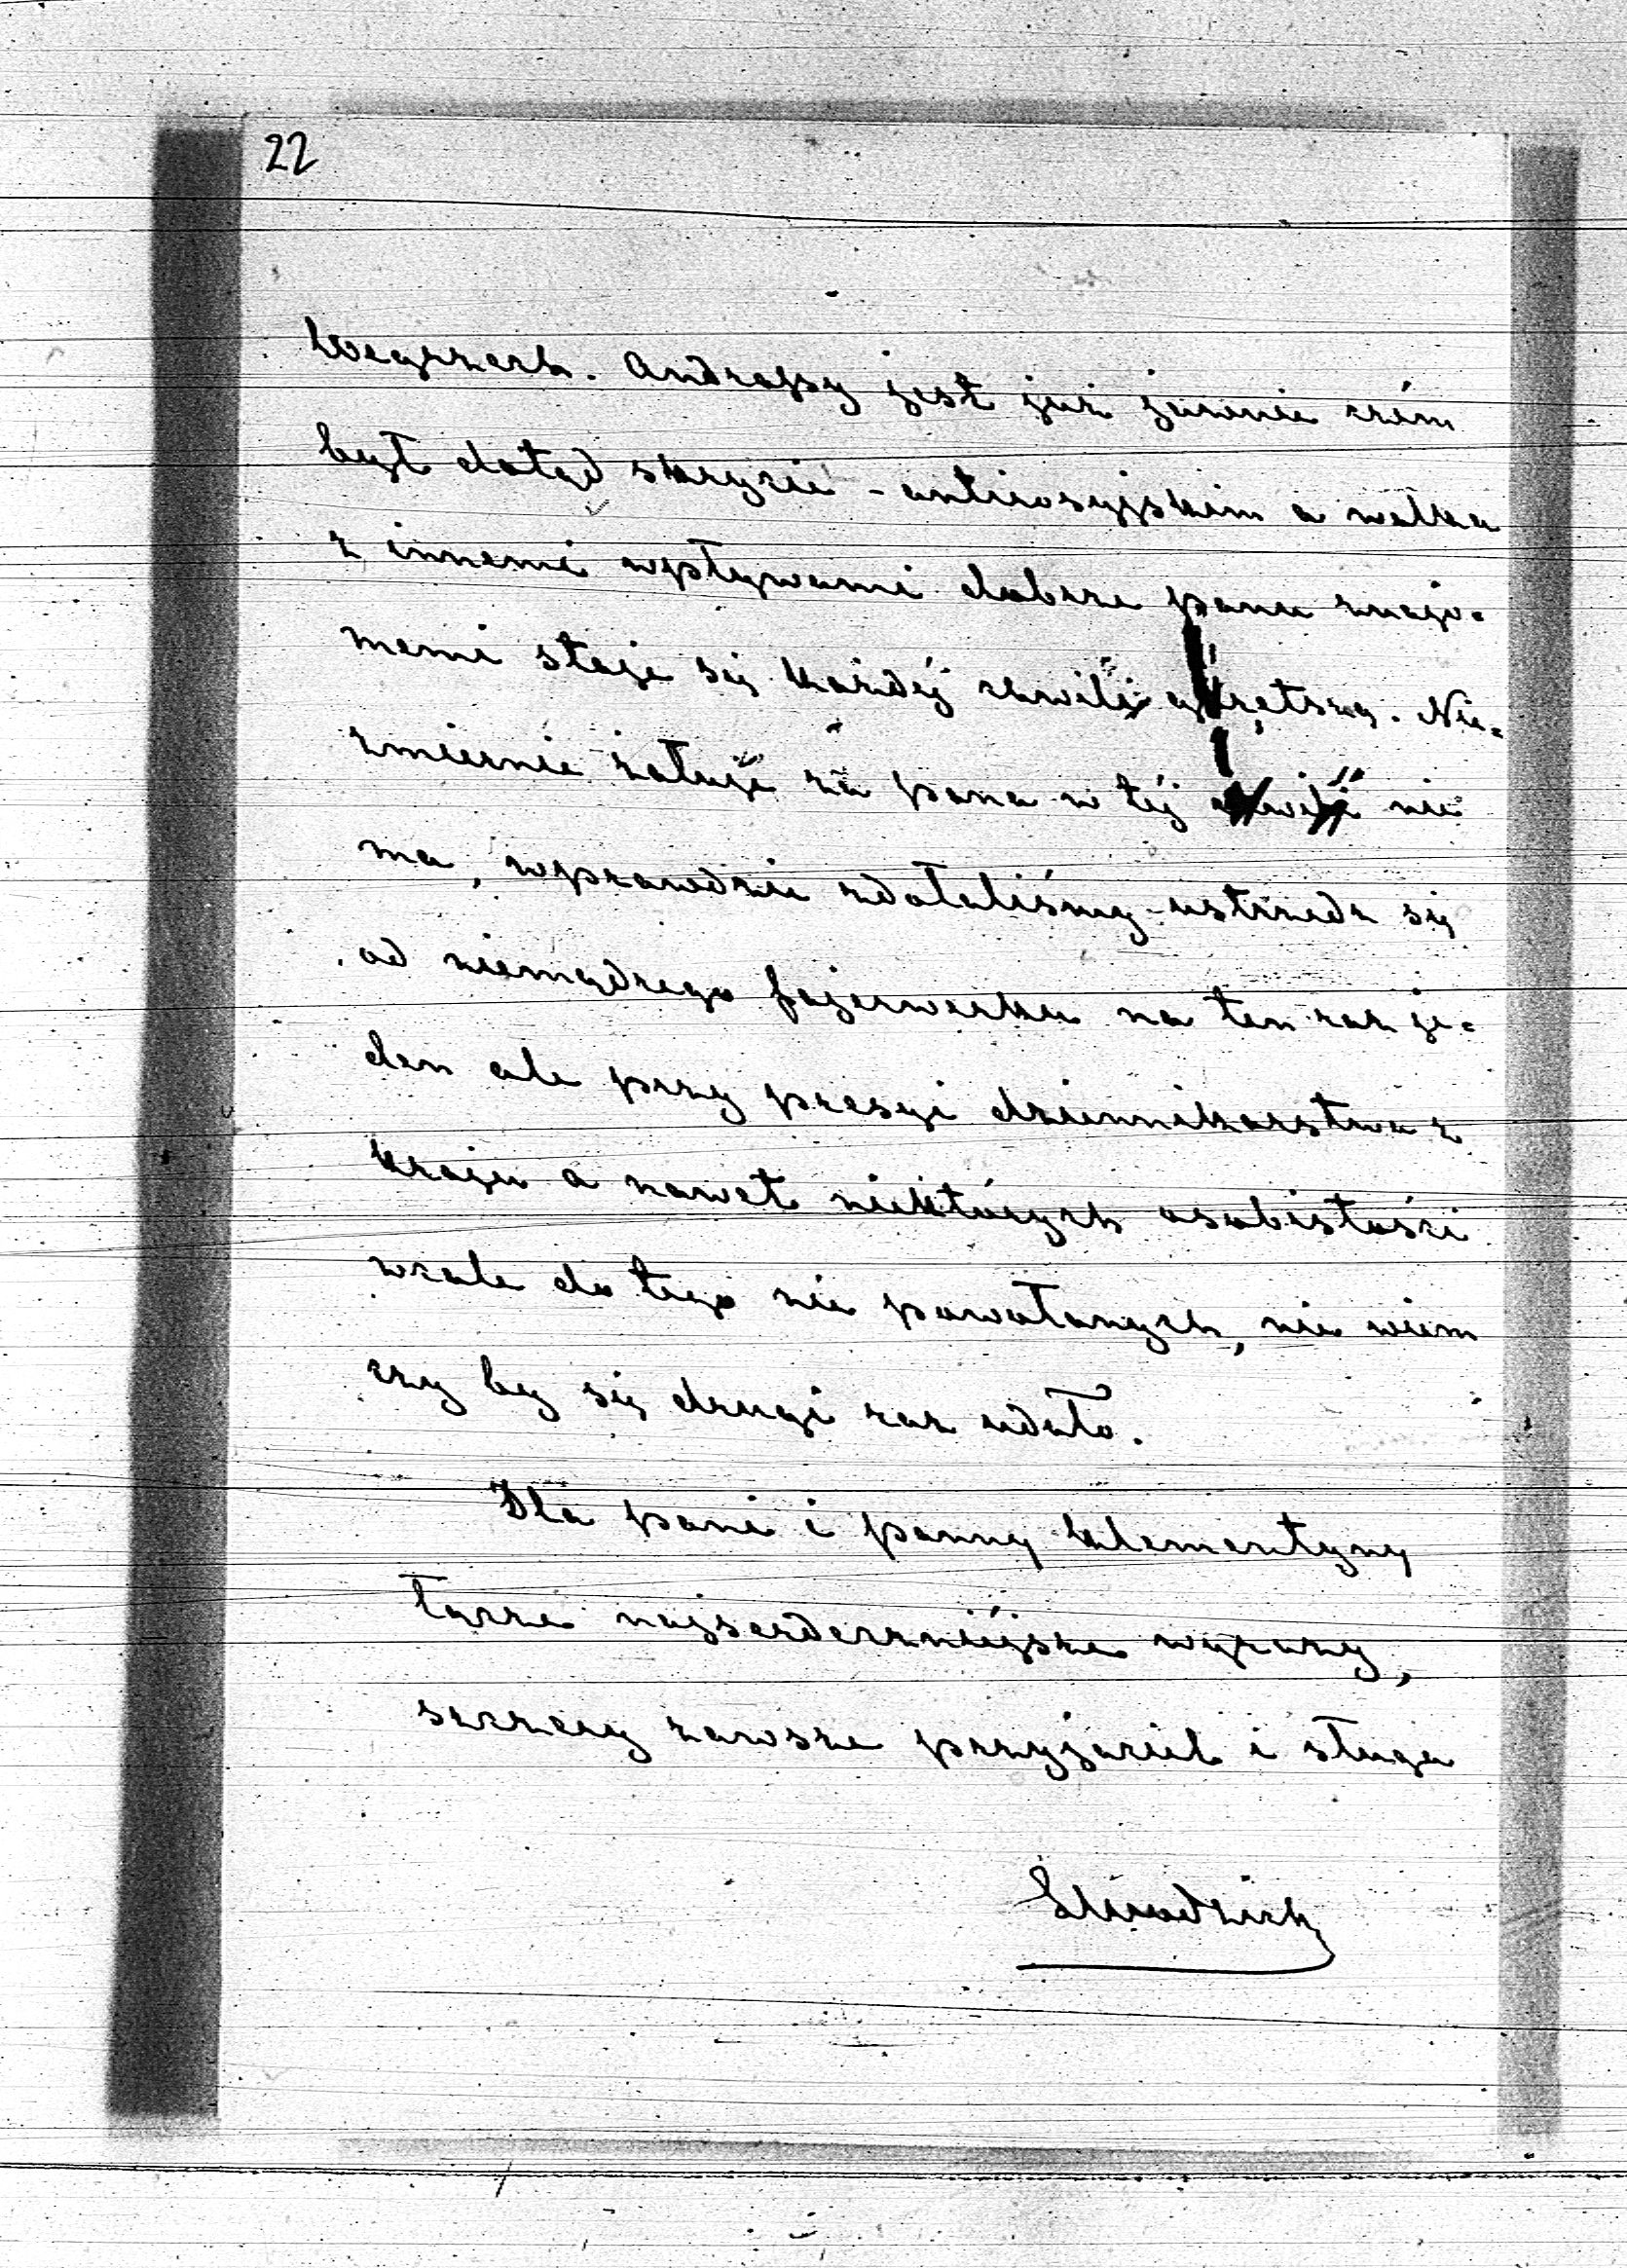 22
Węgrzech. Andrassy jest już jawnie czém
był dotąd skrycie - antirosyjskim a walka
z innemi wpływami dobrze panu znajo=
memi staje się każdéj chwili Nie=
zmiernie żałuję że pana w téj chwili nie
ma, wprawdzie zdołaliśmy ustrzedz się
od niemądrego fajerwerku na ten raz je=
den ale przy presyi dziennikarstwa z
kraju a nawet niektórych osobistości
wcale do tego nie powołanych, nie wiem
czy by się drugi raz udało.
Dla pani i panny Klementyny
łączę najserdeczniéjsze wyrazy,
szczery zawsze przyjaciel i sługa